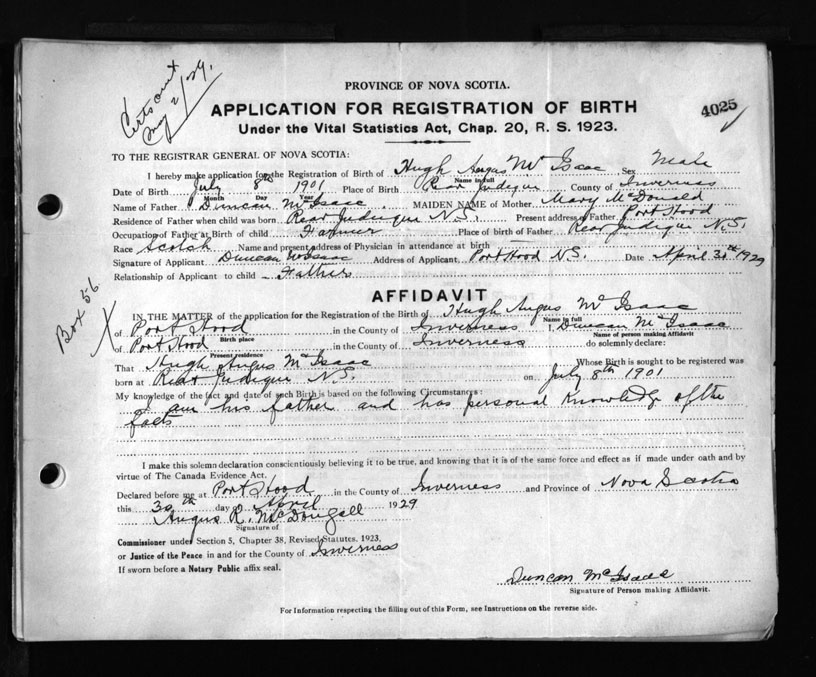 Cert sent
May 2/29.
PROVINCE OF NOVA SCOTIA.
4025
APPLICATION FOR REGISTRATION OF BIRTH
Under the Vital Statistics Act, Chap. 20, R. S. 1923.
TO THE REGISTRAR GENERAL OF NOVA SCOTIA:
I hereby make application for the Registration of Birth of Hugh Angus McIsaac Sex Male
Name in full
Date of Birth July 8th 1901 Place of Birth Rear Judique County of Inverness
Month Day Year
Name of Father Duncan McIsaac MAIDEN NAME of Mother Mary McDonald
Residence of Father when child was born Rear Judique N.S. Present address of Father Port Hood
Occupation of Father at Birth of child Farmer Place of birth of Father Rear Judique N.S.
Race Scotch Name and present address of Physician in attendance at birth —
Signature of Applicant Duncan McIsaac Address of Applicant Port Hood N.S. Date April 30th 1929
Relationship of Applicant to child - Father
Box 56
X
AFFIDAVIT
IN THE MATTER of the application for the Registration of the Birth of Hugh Angus McIsaac
Name in full
of Port Hood in the County of Inverness I, Duncan McIsaac
Birth place Name of person making Affidavit
of Port Hood in the County of Inverness do solemnly declare:
Present residence
That Hugh Angus McIsaac Whose Birth is sought to be registered was
born at Rear Judique N.S. on July 8th 1901
My knowledge of the fact and date of such Birth is based on the following Circumstances:
I am his father and has personal knowledge of the
facts
I make this solemn declaration conscientiously believing it to be true, and knowing that it is of the same force and effect as if made under oath and by
virtue of The Canada Evidence Act.
Declared before me at Port Hood in the County of Inverness and Province of Nova Scotia
this 30th day of April 1929
Angus R. McDougall
Signature of
Commissioner under Section 5, Chapter 38, Revised Statutes. 1923,
or Justice of the Peace in and for the County of Inverness
If sworn before a Notary Public affix seal.
Duncan McIsaac
Signature of Person making Affidavit.
For Information respecting the filling out of this Form, see Instructions on the reverse side.